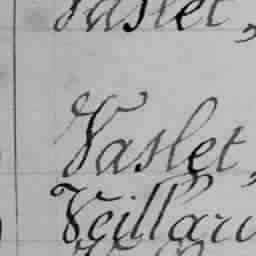 Vaslet,
Vaslet,
Veillard